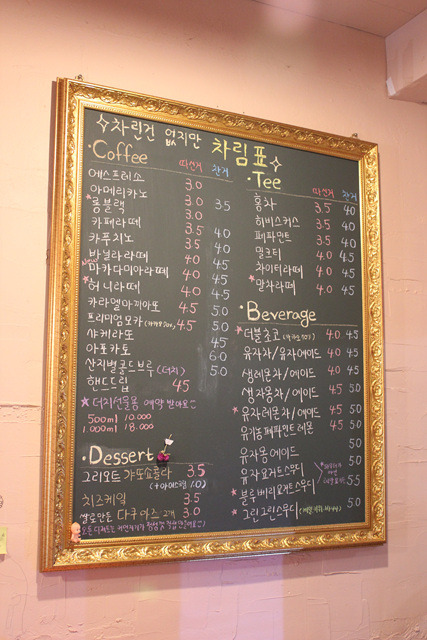 차린건 없지만 차림표
·Coffee 따신거 찬거
에스프레소 3.0
아메리카노 3.0 3.5
*롱블랙 3.0
카페라떼 3.5 4.0
카푸치노 3.5 4.0
바닐라라떼 4.0 4.5
마카다미아라떼 4.0 4.5
*허니라떼 4.0 4.5
카라멜마끼아또 4.5 5.0
프리미엄모카 4.5 5.0
샤케라또 4.5
아포카토 6.0
산지별콜드브루 (더치) 5.0
핸드드립 4.5
★더치선물용 예약받아요
500ml 10.000
1.000ml 18.000
·Dessert
그리오뜨 갸또쇼콜라 3.5
치즈케익 3.5
쌀로만든 다쿠아즈 2개 3.0
·Tee 따신거 찬거
홍차 3.5 4.0
히비스커스 3.5 4.0
페퍼민트 3.5 4.0
밀크티 4.0 4.5
차이티라떼 4.0 4.5
*말차라떼 4.0 4.5
·Beverage
*더블초코 4.0 4.5
유자차/유자에이드 4.0 4.5
생레몬차/에이드 4.0 4.5
생자몽차/에이드 4.5 5.0
*유자레몬차/에이드 4.5 5.0
유기농페퍼민트레몬 4.5 5.0
유자몽에이드 5.0
유자요거트스무디 5.0
*블루베리요거트스무디 5.5
*그린그린스무디 5.0